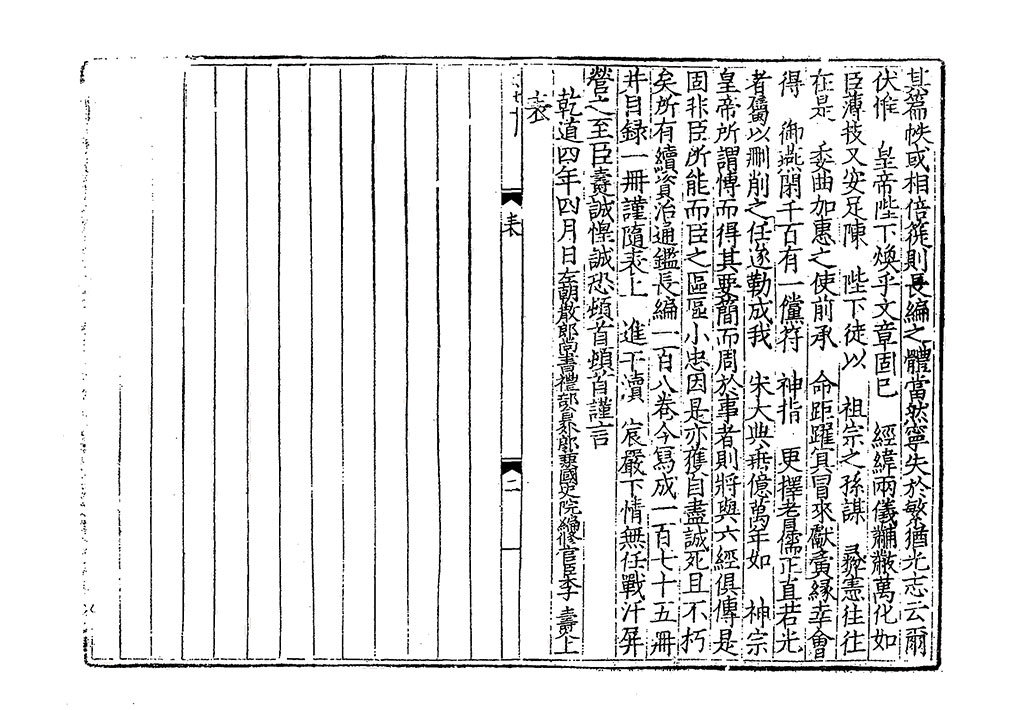 其篇帙或相倍蓰則長編之體當然寧失於繁猶光志云爾
伏惟 皇帝陛下煥乎文章固已 經緯兩儀黼黻萬化如
臣薄技又安足陳 陛下徒以 祖宗之孫謀 彝憲往往
在是 委曲加惠之使前承 命距躍寘冒來獻夤緣幸會
得 御燕閑千百有一儻符 神指 更擇耆儒正直若光
者屬以刪削之任遂勒成我 宋大典垂億萬年如 神宗
皇帝所謂博而得其要簡而周於事者則將與六經俱傳是
固非臣所能而臣之區區小忠因是亦獲自盡誠死且不朽
矣所有續資治通鑑長編一百八卷今寫成一百七十五冊
并目録一冊謹隨表上 進干瀆 宸嚴下情無任戰汗屏
營之至臣燾誠惶誠恐頓首頓首謹言
乾道四年四月日左朝散郎尚書禮部員外郎兼國史院編修官臣李 燾上
表
表
二